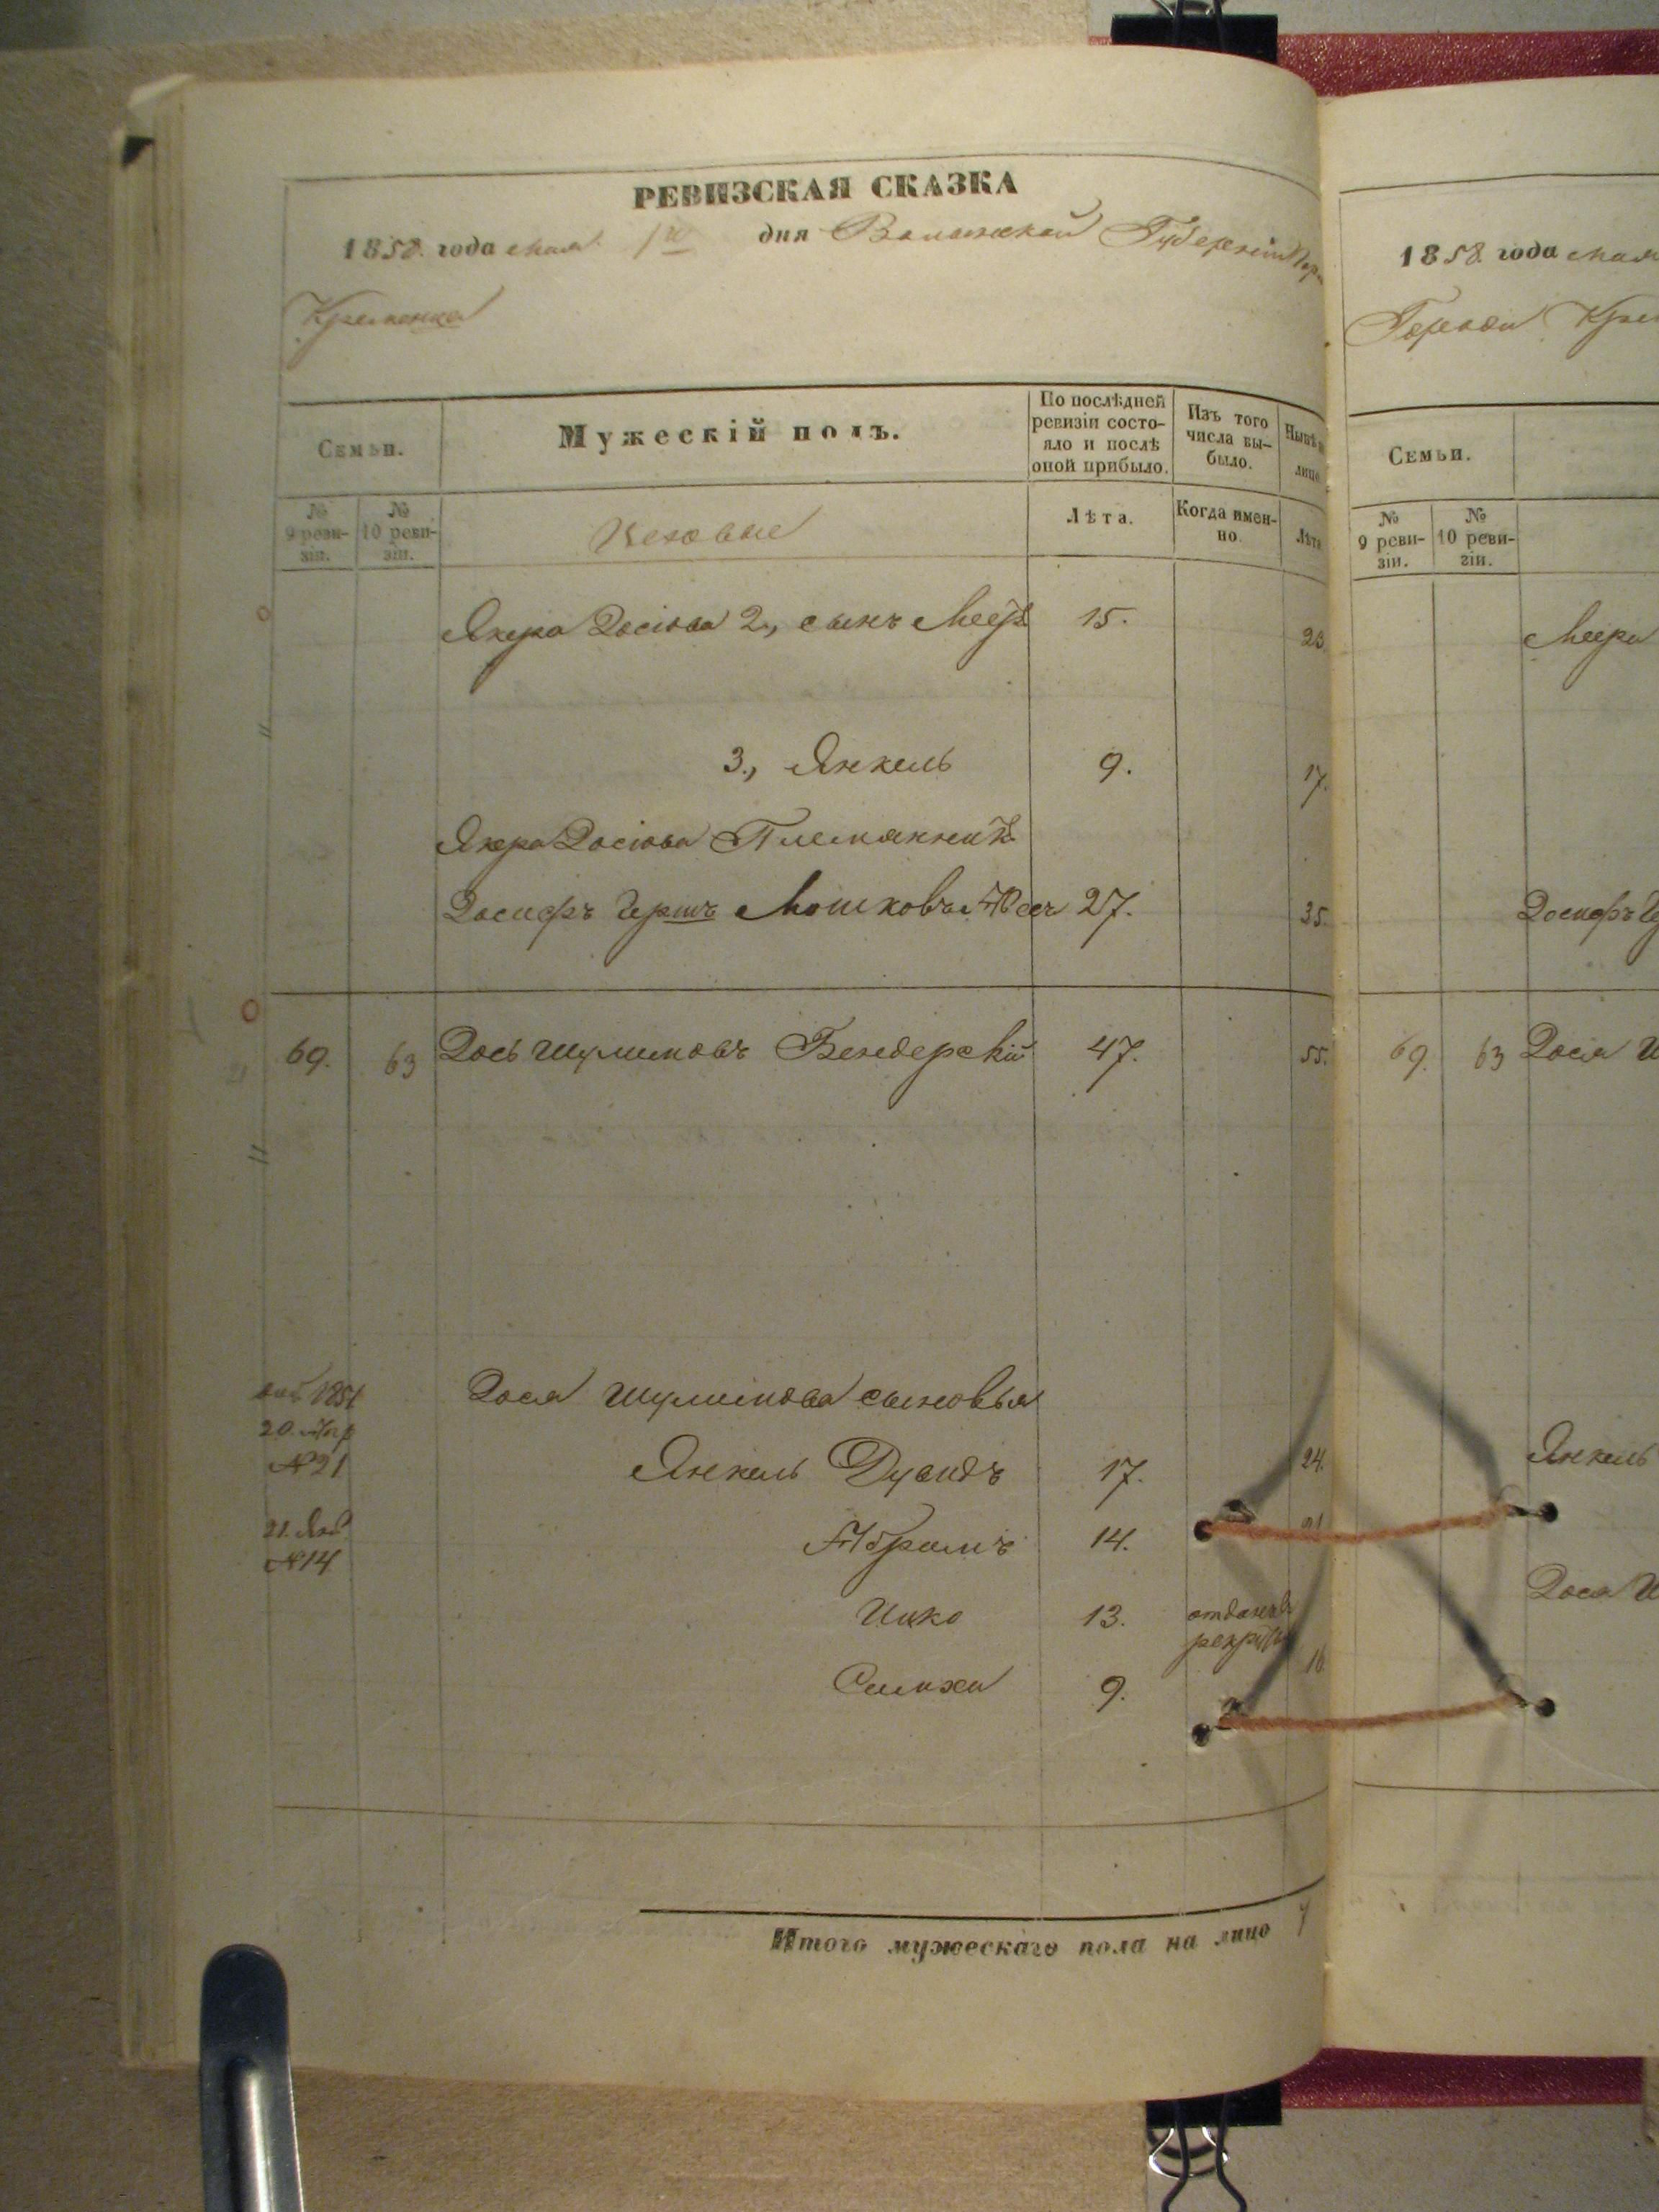 РЕВИЗСКАЯ СКАЗКА
1858 года мая 1го дня Волынской Губерніи
Кременца
Семьи. Мужескій полъ. По послѣдней ревизіи состояло и послѣ оной прибыло. Изъ того числа выбыло.
№ 9 ревизіи. № 10 ревизіи. Цеховые Лѣта. Когда именно. Лѣта
Якера Іосіова 2., сынъ Мееръ 15. 23
3., Янкель 9. 17.
Якера Іосіова Племянникъ
Іосифъ Гершъ Мошковъ 27. 35.
69. 63 Іось Шулимовъ Бендерскій 47. 55.
Іося Шулимова сыновья
1851
20.
№21
Янкель Дувидъ 17. 24.
21. Янв
№14
Абрамъ 14. 21
Ицко 13. отданъ в рекруты
Симха 9. 16
Итого мужескаго пола на лицо 7
1858 года мая
Города Кре
Семьи.
№ 9 ревизіи. № 10 ревизіи.
Меера
Іосифъ Ге
69. 63 Іося Ш
Янкель
Іося Ш